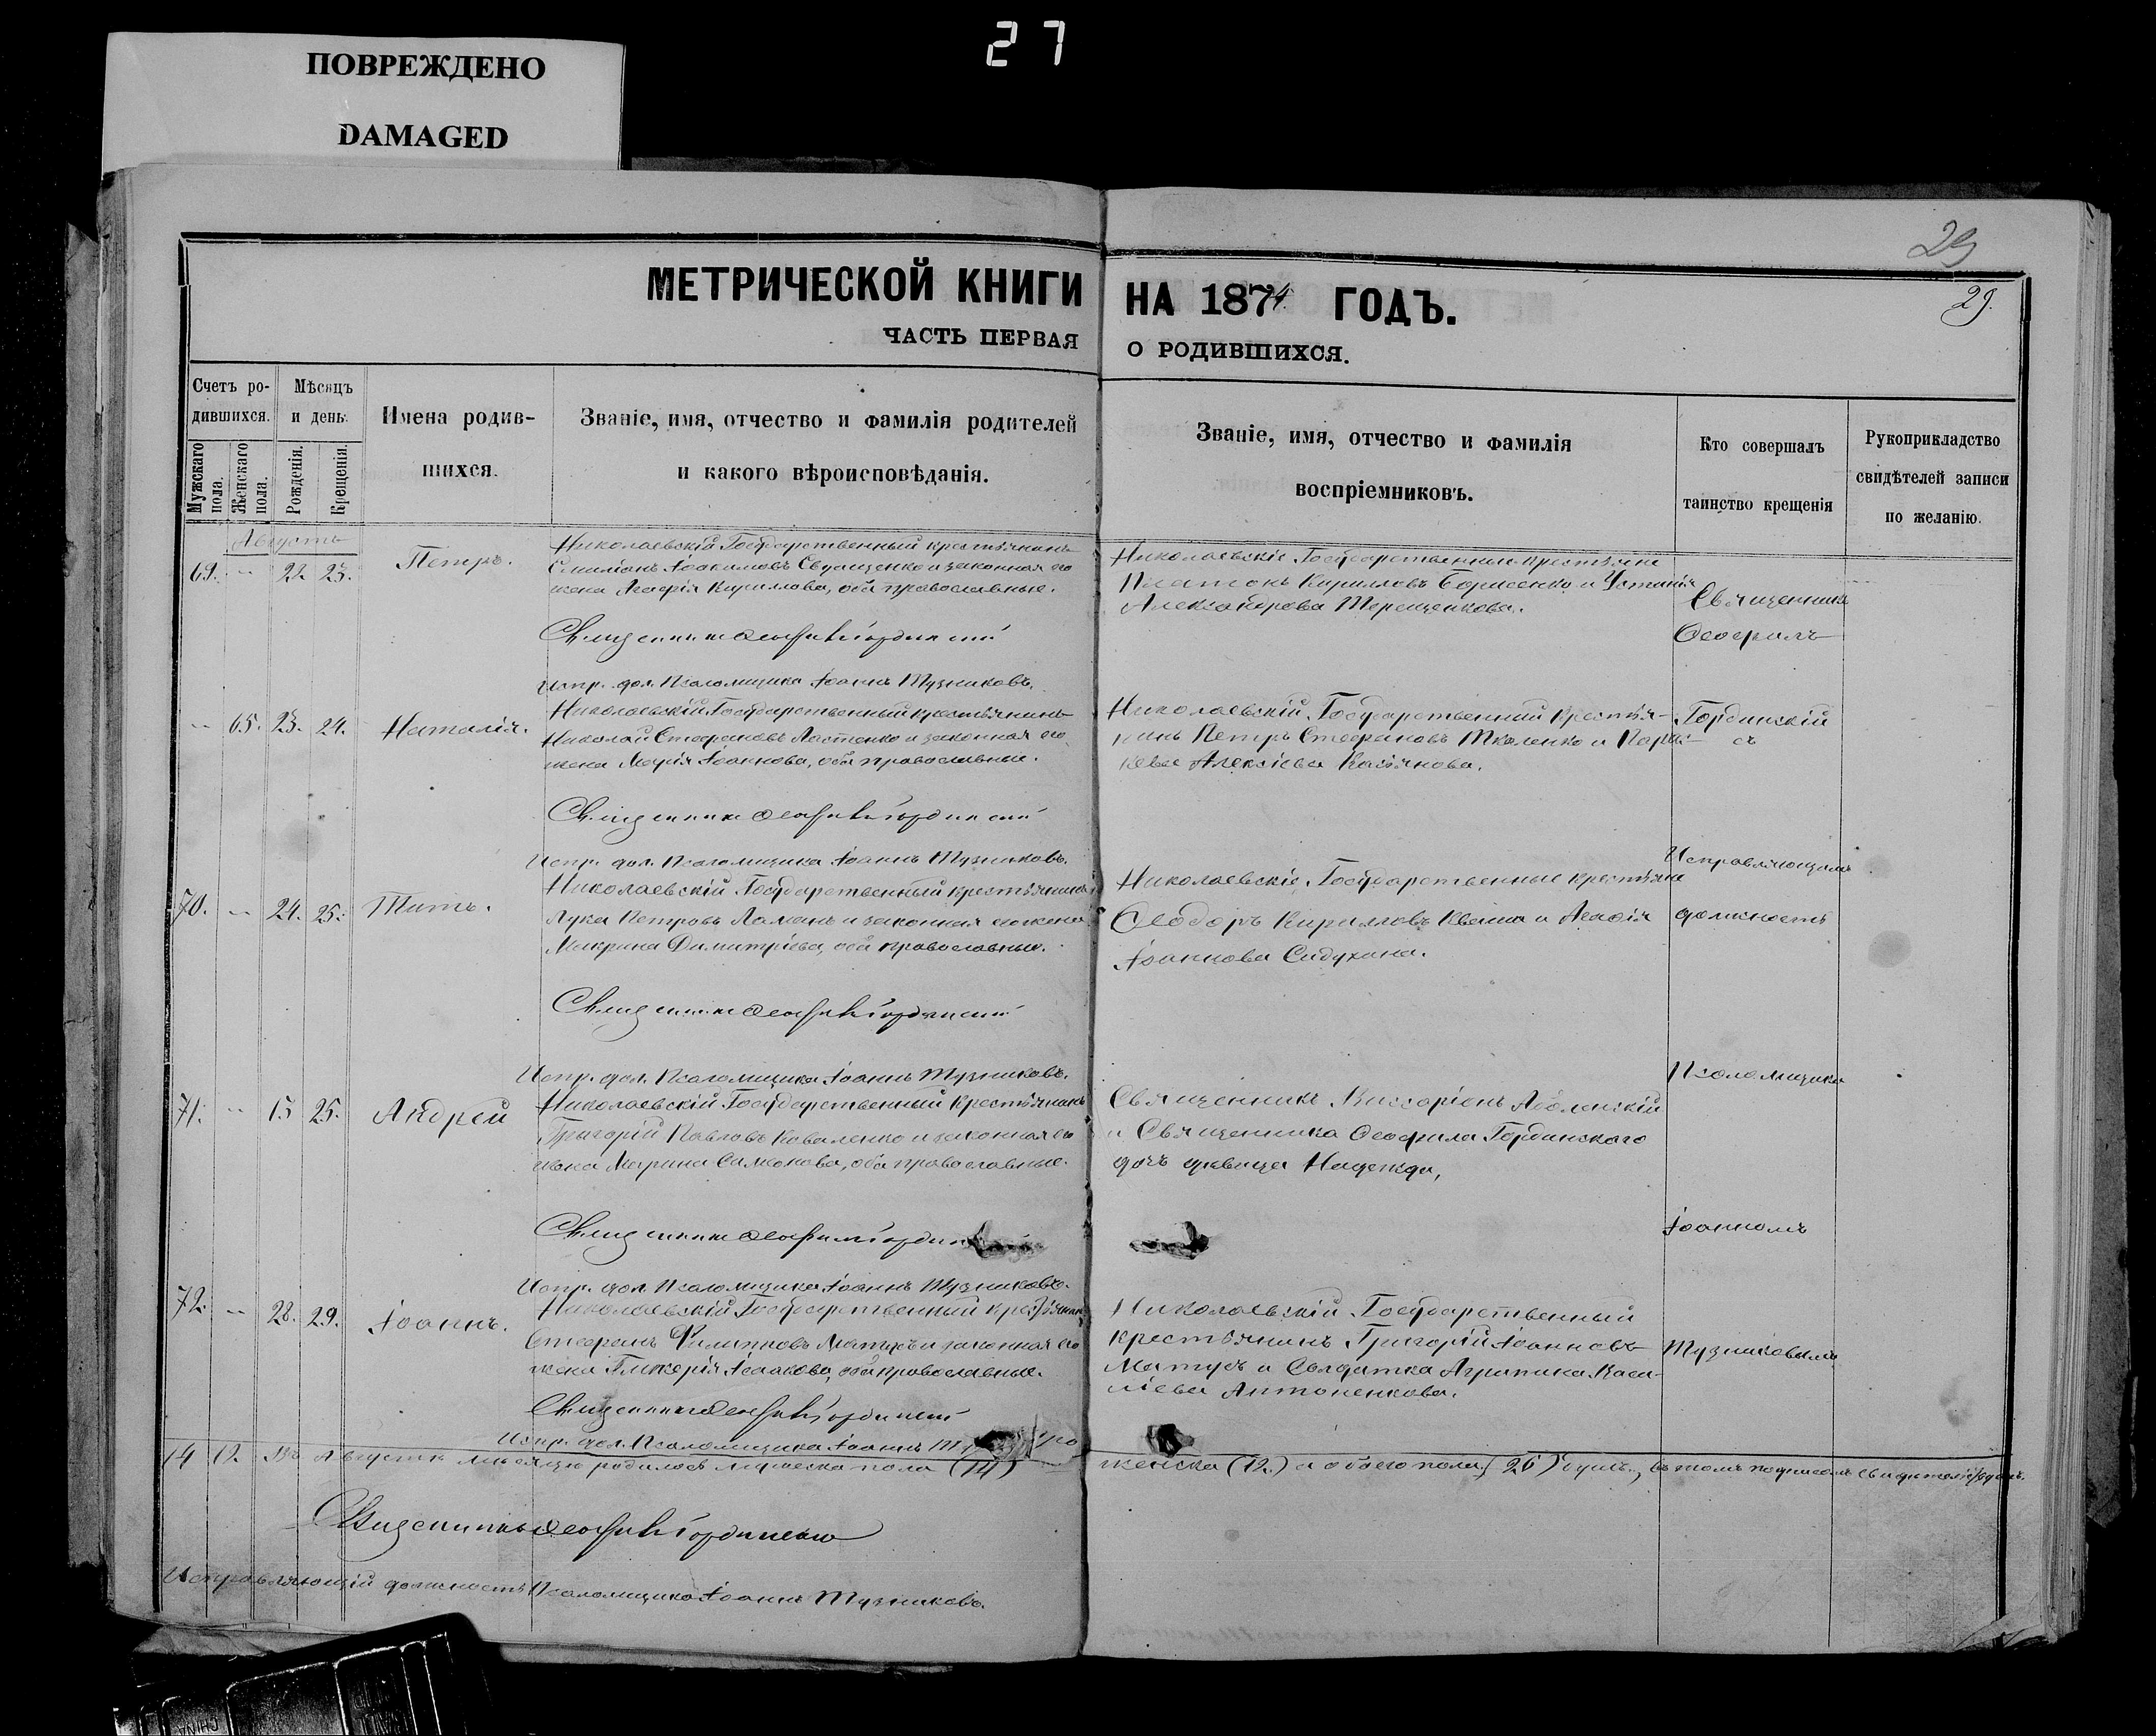 27
ПОВРЕЖДЕНО
DAMAGED
29
29.
МЕТРИЧЕСКОЙ КНИГИ НА 1874 ГОДЪ.
ЧАСТЬ ПЕРВАЯ О РОДИВШИХСЯ.
Счетъ ро-
дившихся.
Мужскаго пола.
Женскаго пола.
Мѣсяцъ
и день.
Рожденія.
Крещенія.
Имена родив-
шихся.
Званіе, имя, отчество и фамилія родителей
и какого вѣроисповѣданія.
Званіе, имя, отчество и фамилія
воспріемниковъ.
Кто совершалъ
таинство крещенія
Рукоприкладство
свидѣтелей записи
по желанію.
Августъ
69. -- 22. 23. Петръ.
Николаевскій Государственный крестьянинъ
Іоакимовъ и законная его
жена Агафія Кириллова, оба православные.
Священникъ Ѳеофилъ Гординскій
Испр. дол. Псаломщика Іоаннъ Тузниковъ.
Николаевскіе Государственные крестьяне
Платонъ Кирилловъ Борисенко и Устинія
Александрова Терещенкова.
Священникъ
Ѳеофилъ
-- 65. 23. 24. Наталія.
Николаевскій Государственный крестьянинъ
Николай Стефановъ Ластенко и законная его
жена Марія Іоаннова, оба православные.
Священникъ Ѳеофилъ Гординскій
Испр. дол. Псаломщика Іоаннъ Тузниковъ.
Николаевскій Государственный крестья-
нинъ Петръ Стефановъ Ткаленко и Парас-
кева Алексіева Касьянова.
Гординскій
съ
70. -- 24. 25. Титъ.
Николаевскій Государственный крестьянинъ
Лука Петровъ Ламанъ и законная его жена
Макрина Димитріева, оба православные.
Священникъ Ѳеофилъ Гординскій
Испр. дол. Псаломщика Іоаннъ Тузниковъ.
Николаевскіе Государственные крестьяне
Ѳеодоръ Кирилловъ Кваша и Агафія
Іоаннова
Исправляющимъ
должность
71. -- 15 25. Андрей
Николаевскій Государственный крестьянинъ
Григорій Павловъ Коваленко и законная его
жена Марина Симонова, оба православные.
Священникъ Ѳеофилъ
Испр. дол. Псаломщика Іоаннъ Тузниковъ.
Священникъ Виссаріонъ
и Священника Ѳеофила Гординскаго
дочь дѣвица Надежда,
Псаломщика
Іоанномъ
72. -- 28. 29. Іоаннъ.
Николаевскій Государственный крестьянинъ
Стефанъ Филипповъ Матусъ и законная его
жена Гликерія Исаакова, оба православные.
Священникъ Ѳеофилъ Гординскій
Испр. дол. Псаломщика Іоаннъ
Николаевскій Государственный
крестьянинъ Григорій Іоанновъ
Матусъ и Солдатка Агрипина Васи-
ліева Антоненкова.
Тузниковымъ
14 12. Въ Августѣ мѣсяцѣ родилось мужеска пола (14)
женска (12.) и обоего пола (26) душъ, въ томъ подписомъ свидѣтельствуемъ.
Священникъ Ѳеофилъ Гординскій
Исправляющій должность Псаломщика Іоаннъ Тузниковъ.